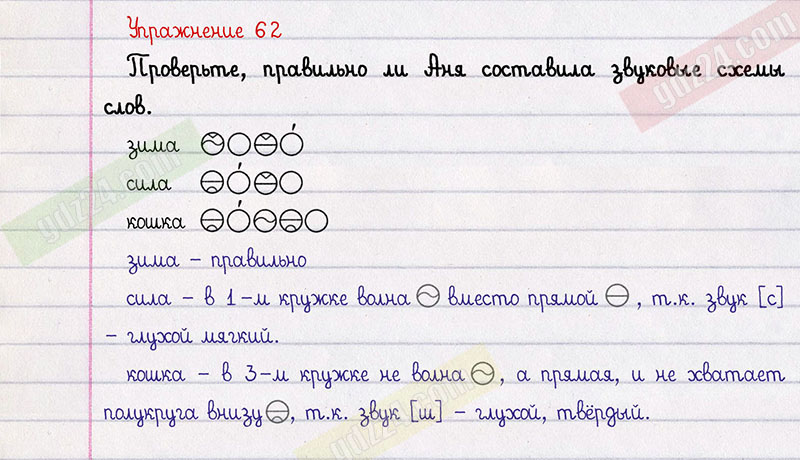 Упражнение 62
Проверьте, правильно ли Аня составила звуковые схемы
слов.
зима
сила
кошка
зима – правильно
сила – в 1-м кружке волна вместо прямой , т.к. звук [с]
– глухой мягкий.
кошка – в 3-м кружке не волна , а прямая, и не хватает
полукруга внизу , т.к. звук [ш] – глухой, твёрдый.
gdz24.com
gdz24.com
gdz24.com